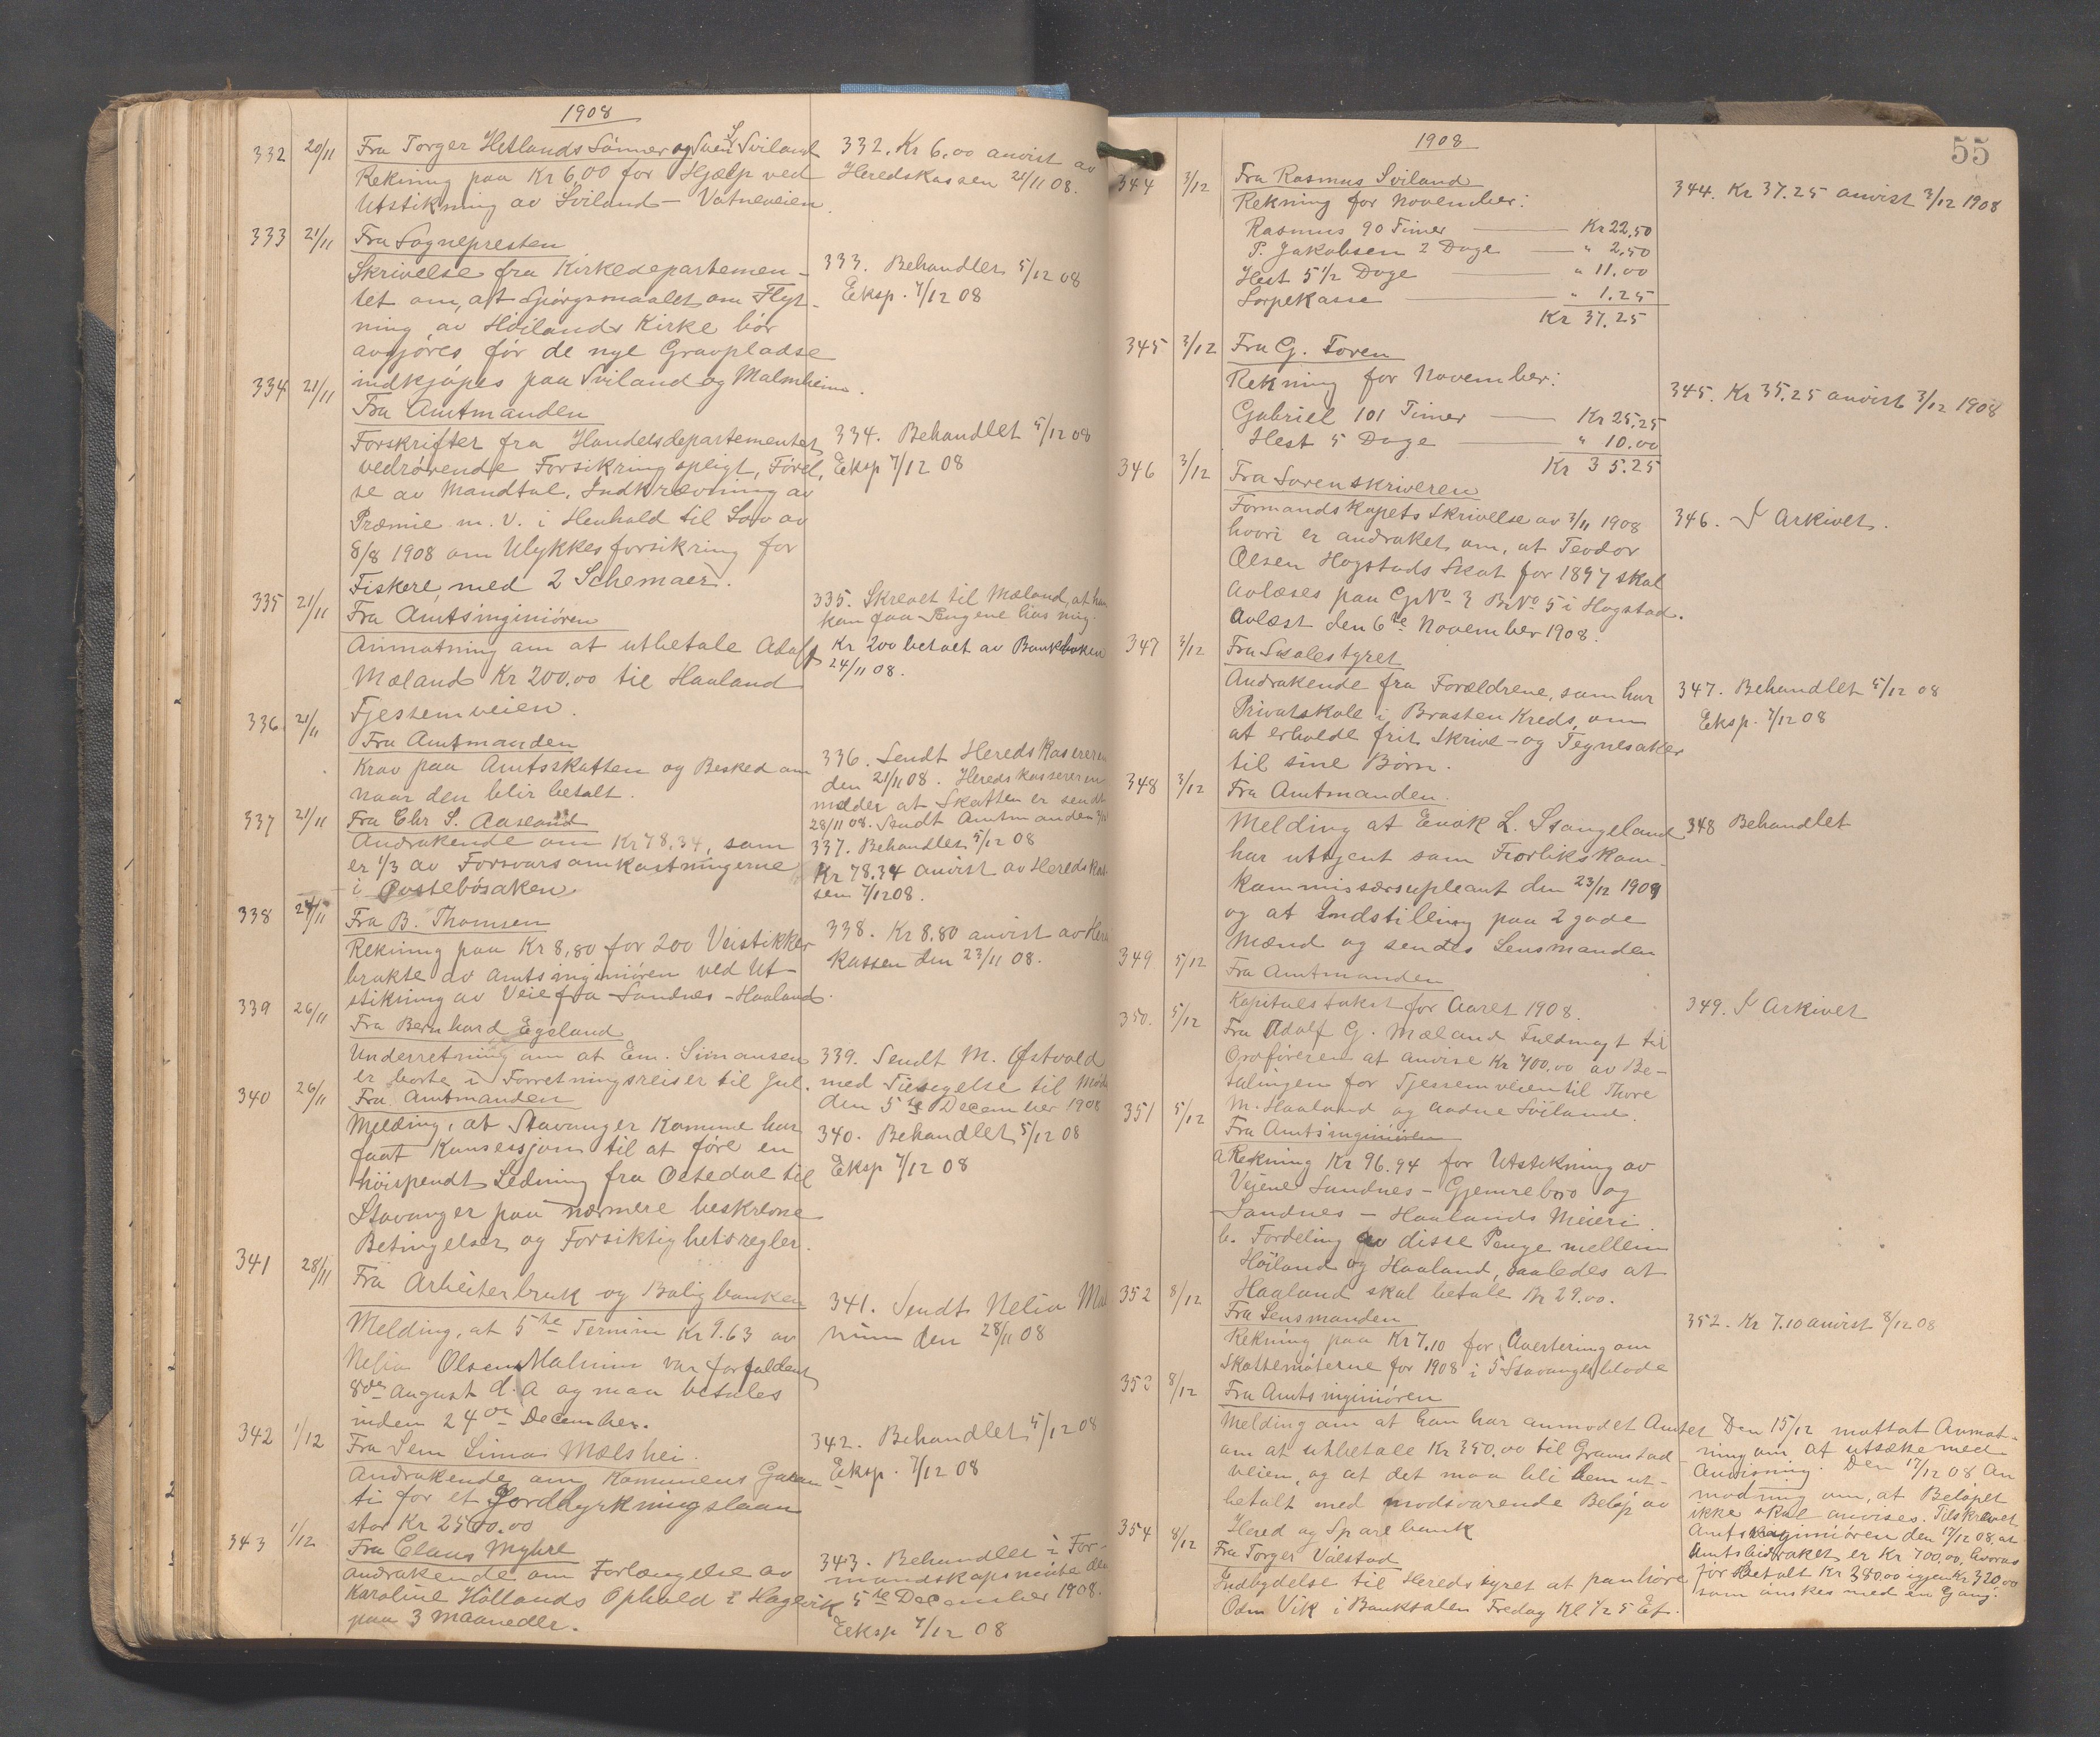 1908
332 20/11 Fra Torger Hetlands Sönner og Sven S. Sviland
Rekning paa Kr 6,00 for Hjælp ved
Utstikning av Sviland - Vatneveien.
332. Kr 6.00 anvist av
Heredskassen 21/11 08.
333 21/11 Fra Sognepresten
Skrivelse fra Kirkedepartemen-
tet om, at Spörgsmaalet om Flyt-
ning av Höilands Kirke bör
avgjöres för de nye Gravpladse
indkjöpes paa Sviland og Malmheim.
333. Behandlet 5/12 08
Eksp. 7/12 08
334 21/11 Fra Amtmanden
Forskrifter fra Handelsdepartementet
vedrörende Forsikringspligt, Förel-
se av Mandtal, Indkrævning av
Præmie m. v. i Henhold til Lov av
8/8 1908 om Ulykkesforsikring for
Fiskere, med 2 Schemaer.
334. Behandlet 5/12 08
Eksp 7/12 08
335 21/11 Fra Amtsinginiören
Anmotning om at utbetale Adolf
Mæland Kr 200.00 til Haaland
Tjessemveien.
335. Skrevet til Mæland, at han
kan faa Pengene hos mig.
Kr 200 betalt av Bankboken
24/11 08.
336 21/11 Fra Amtmanden
Krav paa Amtsskatten og Besked om
naar den blir betalt.
336. Sendt Heredskasereren
den 21/11 08. Heredskassereren
melder at Skatten er sendt
28/11 08. Sendt Amtmanden
337 21/11 Fra Chr S. Aasland
Andrakende om Kr 78,34, som
er 1/3 av Forsvarsomkostningerne
i Postebösaken.
337. Behandlet 5/12 08
Kr 78.34 anvist av Heredskas-
sen 7/12 08.
338 21/11 Fra B. Thomsen
Rekning paa Kr 8,80 for 200 Veistikker
brukte av Amtsinginiören ved Ut-
stikning av Veie fra Sandnes - Haaland.
338. Kr 8.80 anvist av Hered
kassen den 23/11 08.
339 26/11 Fra Bernhard Egeland
Underretning om at Em. Simonsen
er borte i Forretningsreiser til Jul.
339. Sendt M. Østvold
med Tilsigelse til Möte
den 5te December 1908
340 26/11 Fra Amtmanden
Melding, at Stavanger Komune har
faat Konsessjon til at före en
höispendt Ledning fra Oltedal til
Stavanger paa nærmere beskrevne
Betingelser og Forsiktighetsregler.
340. Behandlet 5/12 08
Eksp 7/12 08
341 28/11 Fra Arbeiterbruk og Boligbanken
Melding, at 5te Termin Kr 9.63 av
Nelia Olsen Malmin var forfalden
8de August d. A og maa betales
inden 24de December.
341. Sendt Nelia Mal
min den 28/11 08
342 1/12 Fra Sem Lima Mælshei
Andrakende om Komunens Garan-
ti for et Jorddyrkningslaan
stor Kr 2500.00
342. Behandlet 5/12 08
Eksp. 7/12 08
343 1/12 Fra Claus Myhre
Andrakende om Forlængelse av
Karoline Höllands Ophold i Hagevik
paa 3 Maaneder.
343. Behandlet i For-
mandskapsmöte den
5te December 1908.
Eksp 7/12 08
55
1908
344 3/12 Fra Rasmus Sviland
Rekning for November:
Rasmus 90 Timer Kr 22,50
T. Jakobsen 2 Dage " 2,50
Hest 5 1/2 Dage " 11.00
Sorpekasse " 1.25
Kr 37.25
344. Kr 37.25 anvist 3/12 1908
345 3/12 Fra G. Foren
Rekning for November:
Gabriel 101 Timer Kr 25,25
Hest 5 Dage " 10.00
Kr 35.25
345. Kr 35.25 anvist 3/12 1908
346 3/12 Fra Sorenskriveren
Formandskapets Skrivelse av 3/11 1908
hvori er andraket om, at Teodor
Olsen Hogstads Skat for 1897 skal
Avlæses paa GNo 3 BNo 5 i Hogstad.
Avlæst den 6te November 1908.
346. I Arkivet.
347 3/12 Fra Skolestyret
Andrakende fra Forældrene, som har
Privatskole i Brasten Kreds, om
at erholde frit Skrive- og Tegnesaker
til sine Börn.
347. Behandlet 5/12 08
Eksp. 7/12 08
348 3/12 Fra Amtmanden.
Melding at Enok L. Stangeland
har uttjent som Forlikskom-
kommissærsupleant den 23/12 1909
og at Indstilling paa 2 gode
Mænd og sendes Lensmanden
348 Behandlet
349 5/12 Fra Amtmanden
Kapitalstakst for Aaret 1908.
349. I Arkivet
350. 5/12 Fra Adolf G. Mæland Fuldmagt til
Ordföreren at anvise Kr 700.00 av Be-
talingen for Tjessemveien til Thore
M. Haaland og Aadne Söiland.
351 5/12 Fra Amtsinginiören
a Rekning Kr 96.94 for Utstikning av
Veiene Sandnes - Gjemrebro og
Sandnes - Haalands Meieri.
b. Fordeling av disse Penge mellem
Höiland og Haaland, saaledes at
Haaland skal betale Kr 29.00.
352 8/12 Fra Lensmanden
Rekning paa Kr 7.10 for Avertering om
Skattemöterne for 1908 i 5 Stavangerblade
352. Kr 7.10 anvist 8/12 08
353 8/12 Fra Amtsinginiören
Melding om at han har anmodet Amtet
om at utbetale Kr 350.00 til Gramstad-
veien, og at det maa bli dem ut-
betalt med modsvarende Belöp av
Hered og Sparebank
Den 15/12 mottat Anmot-
ning om at utsætte med
Anvisning. Den 17/12 08 An
modning om, at Belöpet
ikke skal anvises. Tilskrevet
Amtsinginiören den 17/12 08, at
Amtsbidraket er Kr 700.00, hvorav
för betalt Kr 380.00 igjen Kr 320.00
som önskes med en Gang.
354 8/12 Fra Torger Válstad
Indbydelse til Heredsstyret at paahöre
Odm Vik i Banksalen Fredag Kl 1/2 5 Ef.